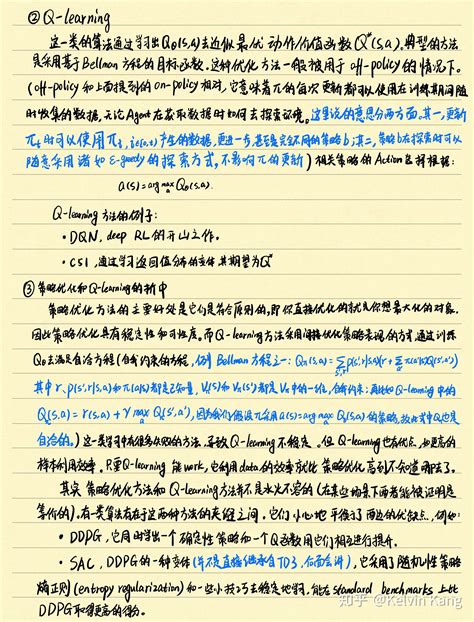 ② Q-learning
这一类的算法通过学习出Qθ(s,a)去近似最优动作/价值函数Q*(s,a). 典型的方法
是采用基于Bellman方程的目标函数. 这种优化方法一般被用于off-policy的情况下.
(off-policy和上面提到的on-policy相对, 它意味着π的每次更新都可以使用在训练期间随
时收集的数据, 无论Agent在获取数据时如何去探索环境. 这里说的意思分两方面. 其一, 更新
πt时可以使用πi, i∈[0,t)产生的数据, 更进一步, 甚至是完全不同的策略b; 其二, 策略b在探索时可以
随意采用诸如ε-greedy的探索方式, 不影响π的更新) 相关策略的Action选择根据:
a(s)=arg max Qθ(s,a).
Q-learning方法的例子:
· DQN, deep RL的开山之作.
· C51, 通过学习返回值分布的 其期望为Q*
③ 策略优化和Q-learning的折中
策略优化方法的主要好处是它们是符合原则的, 即你直接优化的就是你想最大化的对象.
因此策略优化具有稳定性和可靠度. 而Q-learning方法采用间接优化策略表现的方式, 通过训练
Qθ去满足自洽方程(自我约束的方程, 例如Bellman方程之一: Qπ(s,a)=
其中r, p(s',r|s,a)和π(a|s)都是已知量,
Qθ(s,a)=r(s,a)+γ max Qθ(s',a'), 因为我们假设π采用a(s)=arg max Qθ(s,a)的策略, 故此式中Qθ也是
自洽的.) 这一类学习中有很多失败的方法, 导致Q-learning不稳定. 但Q-learning也有优点, 如更高的
样本利用效率. 只要Q-learning能work, 它利用data的效率就比策略优化高到不知道哪去了.
其实策略优化方法和Q-learning方法并不是水火不容的(在某些场景下两者能被证明是
等价的). 有一类算法存在于这两种方法的夹缝之间. 它们小心地平衡了两边的优缺点, 例如:
· DDPG, 它同时学出一个确定性策略和一个Q函数用它们相互进行提升.
· SAC, DDPG的一种变体(并不直接继承自TD3, 后面会讲), 它采用了随机性策略
熵正则(entropy regularization)和一些小技巧去稳定地学习, 能在standard benchmarks上比
DDPG取得更高的得分.
知乎 @Kelvin Kang